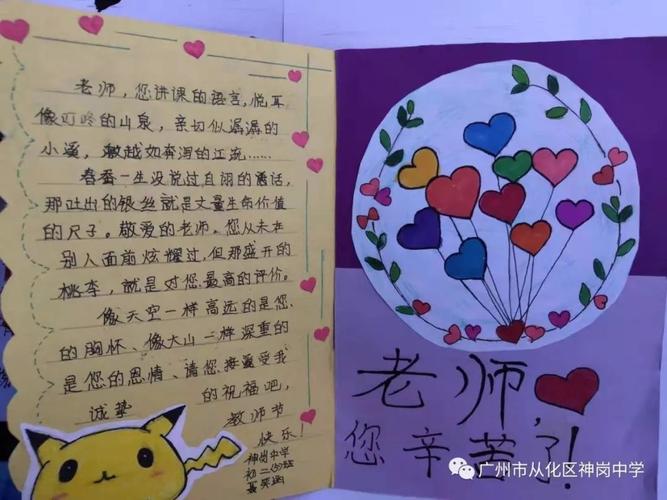 老师，您讲课的语言，悦耳
像叮咚的山泉，亲切似潺潺的
小溪，激越如奔泻的江流……
春蚕一生没说过自诩的话，
那吐出的银丝就是丈量生命价值
的尺子。敬爱的老师，您从未在
别人面前炫耀过，但那盛开的
桃李，就是对您最高的评价。
像天空一样高远的是您
的胸怀、像大山一样深重的
是您的恩情、请您接受我
诚挚的祝福吧，
教师节
快乐！
神岗中学
老师，
您辛苦了！
广州市从化区神岗中学